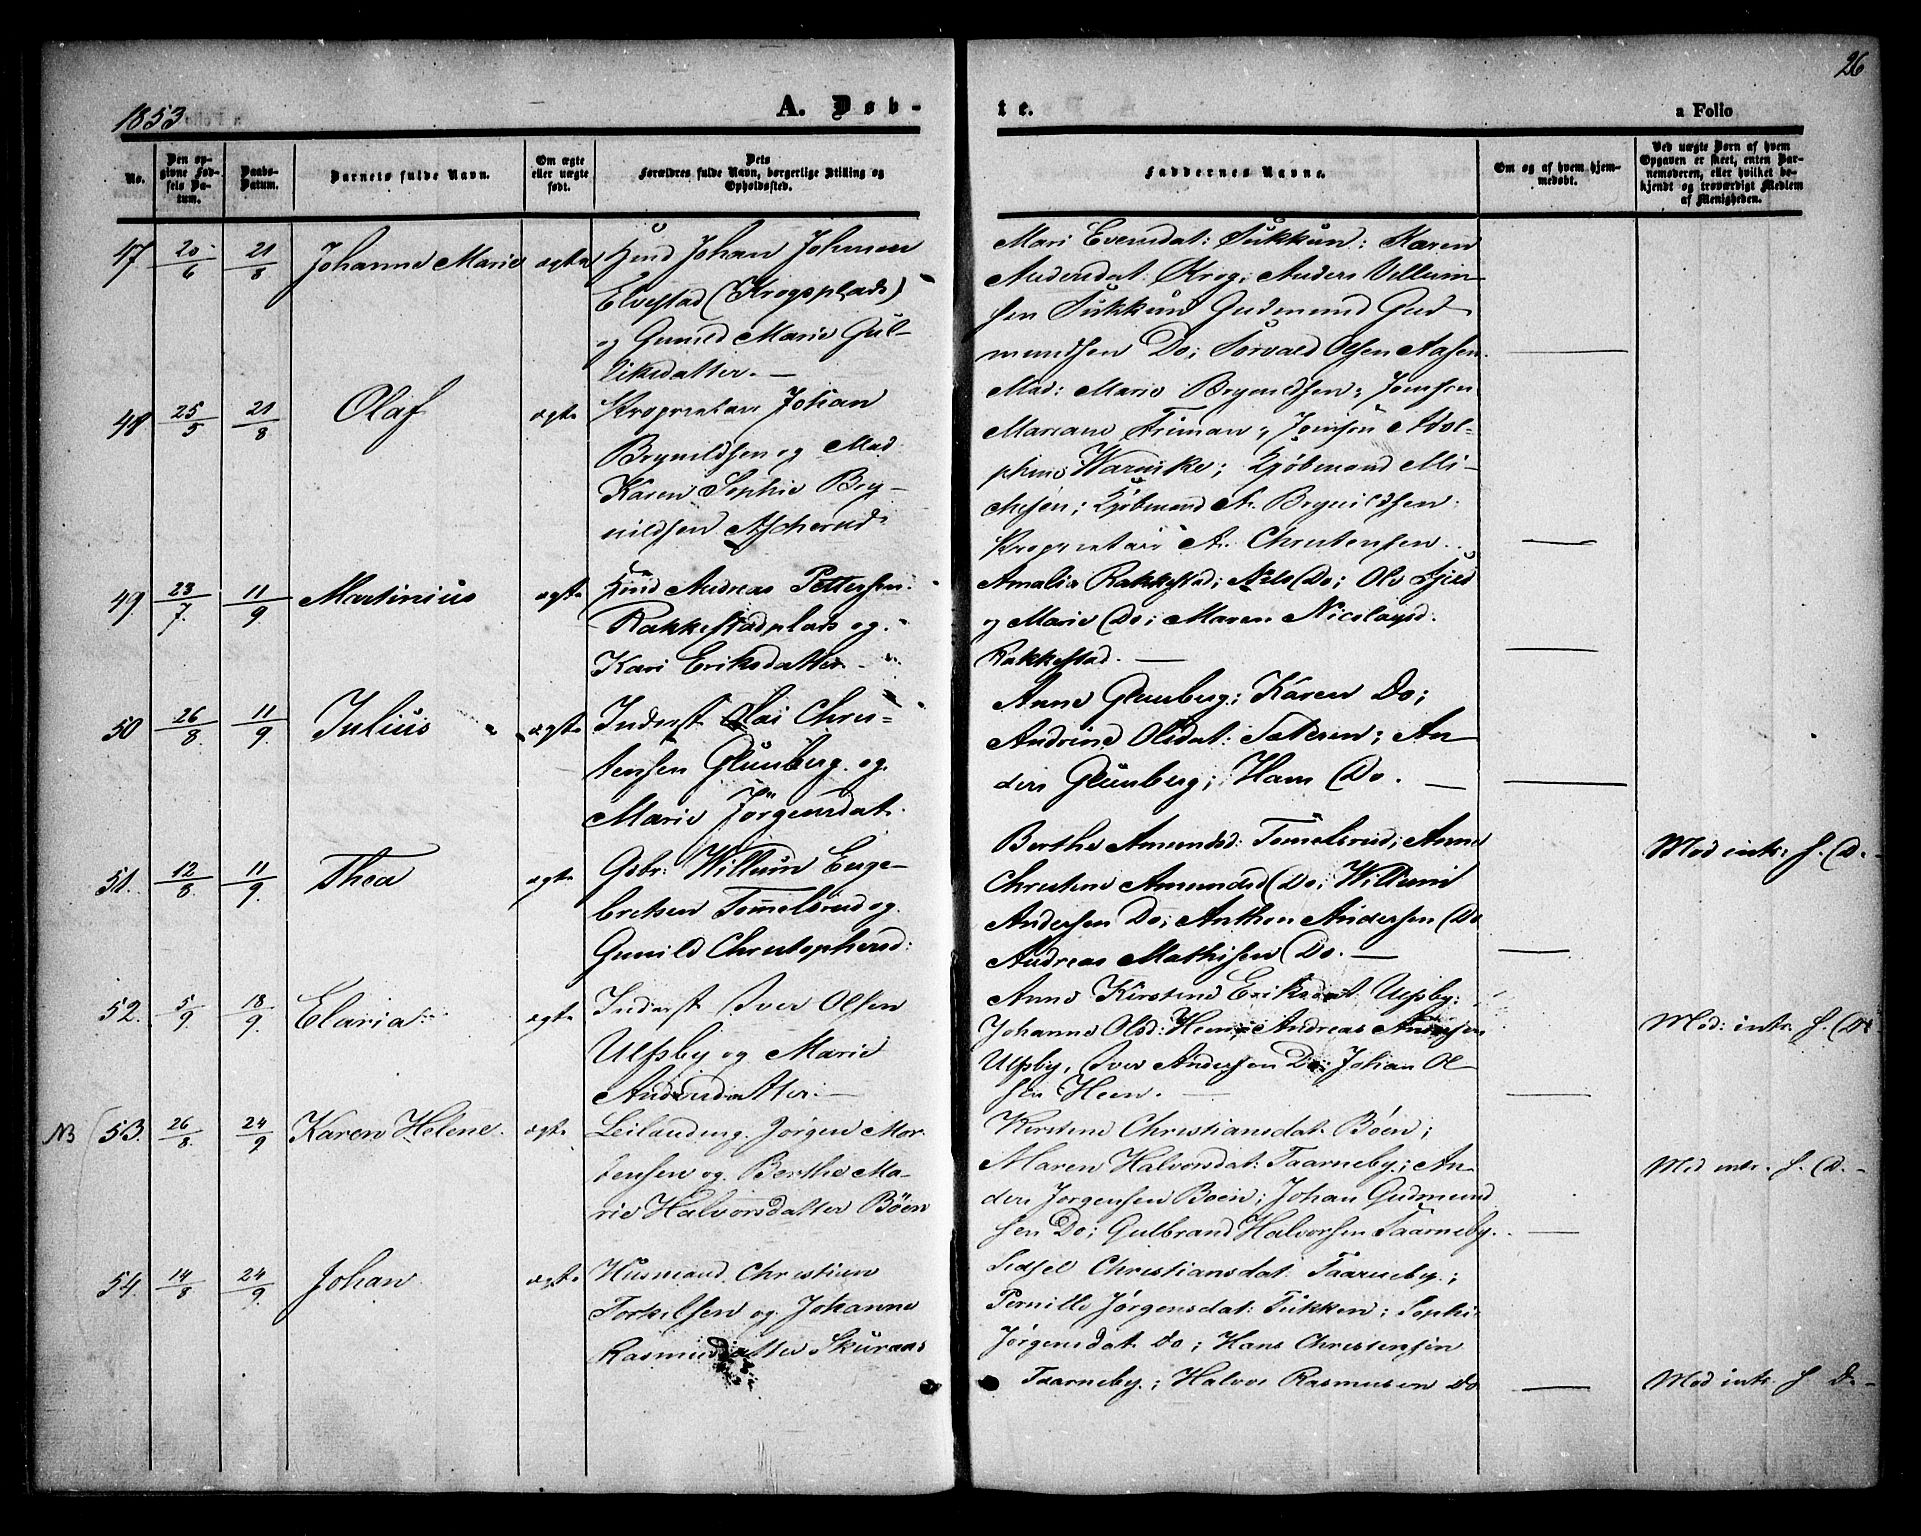 26
1853
A. Døb-
te.
a Folio
No.
Den op-
givne Fød-
sels Da-
tum.
Daabs-
Datum.
Barnets fulde Navn.
Om ægte
eller uægte
født.
Dets
Forældres fulde Navn, borgerlige Stilling og
Opholdssted.
Faddernes Navne.
Om og af hvem hjem-
medøbt.
Ved uægte Børn af hvem
Opgaven er skeet, enten Bar-
nemoderen, eller hvilket be-
kjendt og troværdigt Medlem
af Menigheden.
47 20/6 21/8 Johanne Marie ægte
Huusmd Johan Johnsen
Elvestad (Krogsplads)
og Gunild Marie Gul-
liksdatter. —
Mari Evensdat: Tukkun: Karen
Andersdat: Krog; Anders Villum-
sen Tukkun Gudmund Gud-
mundsen Do; Torvald Olsen Aasen.
48 25/5 21/8 Olaf ægte
Proprietair Johan
Brynildsen og Mad
Karen Sophie Bry-
nildsen Ascherud.
Mad: Marie Brynildsen; Jomfru
Mariane Friman; Jomfru Adol-
phine Warnike; Kjøbmand Mi-
chesen; Kjøbmand A. Brynildsen:
Proprietair A. Christensen.
49. 23/7. 11/9 Martinius ægte
Huusmd Andreas Pettersen
Rakkestadplads og
Kari Eriksdatter —
Amalia Rakkestad; Nils (Do; Ole Fjeld
og Marie (Do; Maren Nicolaysd:
Rakkestad. —
50 26/8. 11/9. Julius ægte
Inderst Olai Chris-
tensen Glenberg og
Marie Jörgensdat.
Anne Glenberg; Karen Do;
Andrine Olsdat: Sæteren; An-
ders Glenberg; Hans (Do. —
51. 12/8. 11/9. Thea ægte
Gbr: Willum Enge-
bretsen Tömmelsrud og
Gunild Christophersd:
Berthe Amundsd: Tommelsrud; Anne
Christine Amundsd (Do; Willum
Andersen Do; Anthon Andersen (Do
Andreas Mathisen (Do. —
Mod intr: f. (D. -
52. 5/9 18/9. Elaria ægte
Inderst Iver Olsen
Ulfsby og Marie
Andersdatter: —
Anne Kirstine Eriksdat. Ulfsby;
Johanne Olsd: Heen; Andreas Andersen
Ulfsby, Iver Andersen Do; Johan Ol-
sen Heen. —
Mod: intr. f. (D.
NB (53. 26/8. 24/9 Karen Helene. ægte
Leilænding Jörgen Mor-
tensen og Berthe Ma-
rie Halvorsdatter Böen
Kirstine Christiansdat: Böen;
Maren Halvorsdat: Taarneby; An-
ders Jörgensen Boen; Johan Gudmund
sen Do; Gulbrand Halvorsen Taarneby.
Mod intr. f. (D. -
54. 14/8 24/9. Johan ægte
Husmand Christian
Torkelsen og Johanne
Rasmusdatter Skuraas
Sidsel Christiansdat: Taarneby;
Pernille Jörgensdat: Tukken; Sophie
Jörgensdat Do; Hans Christensen
Taarneby; Halvor Rasmusen Do
Mod intr. f D. -